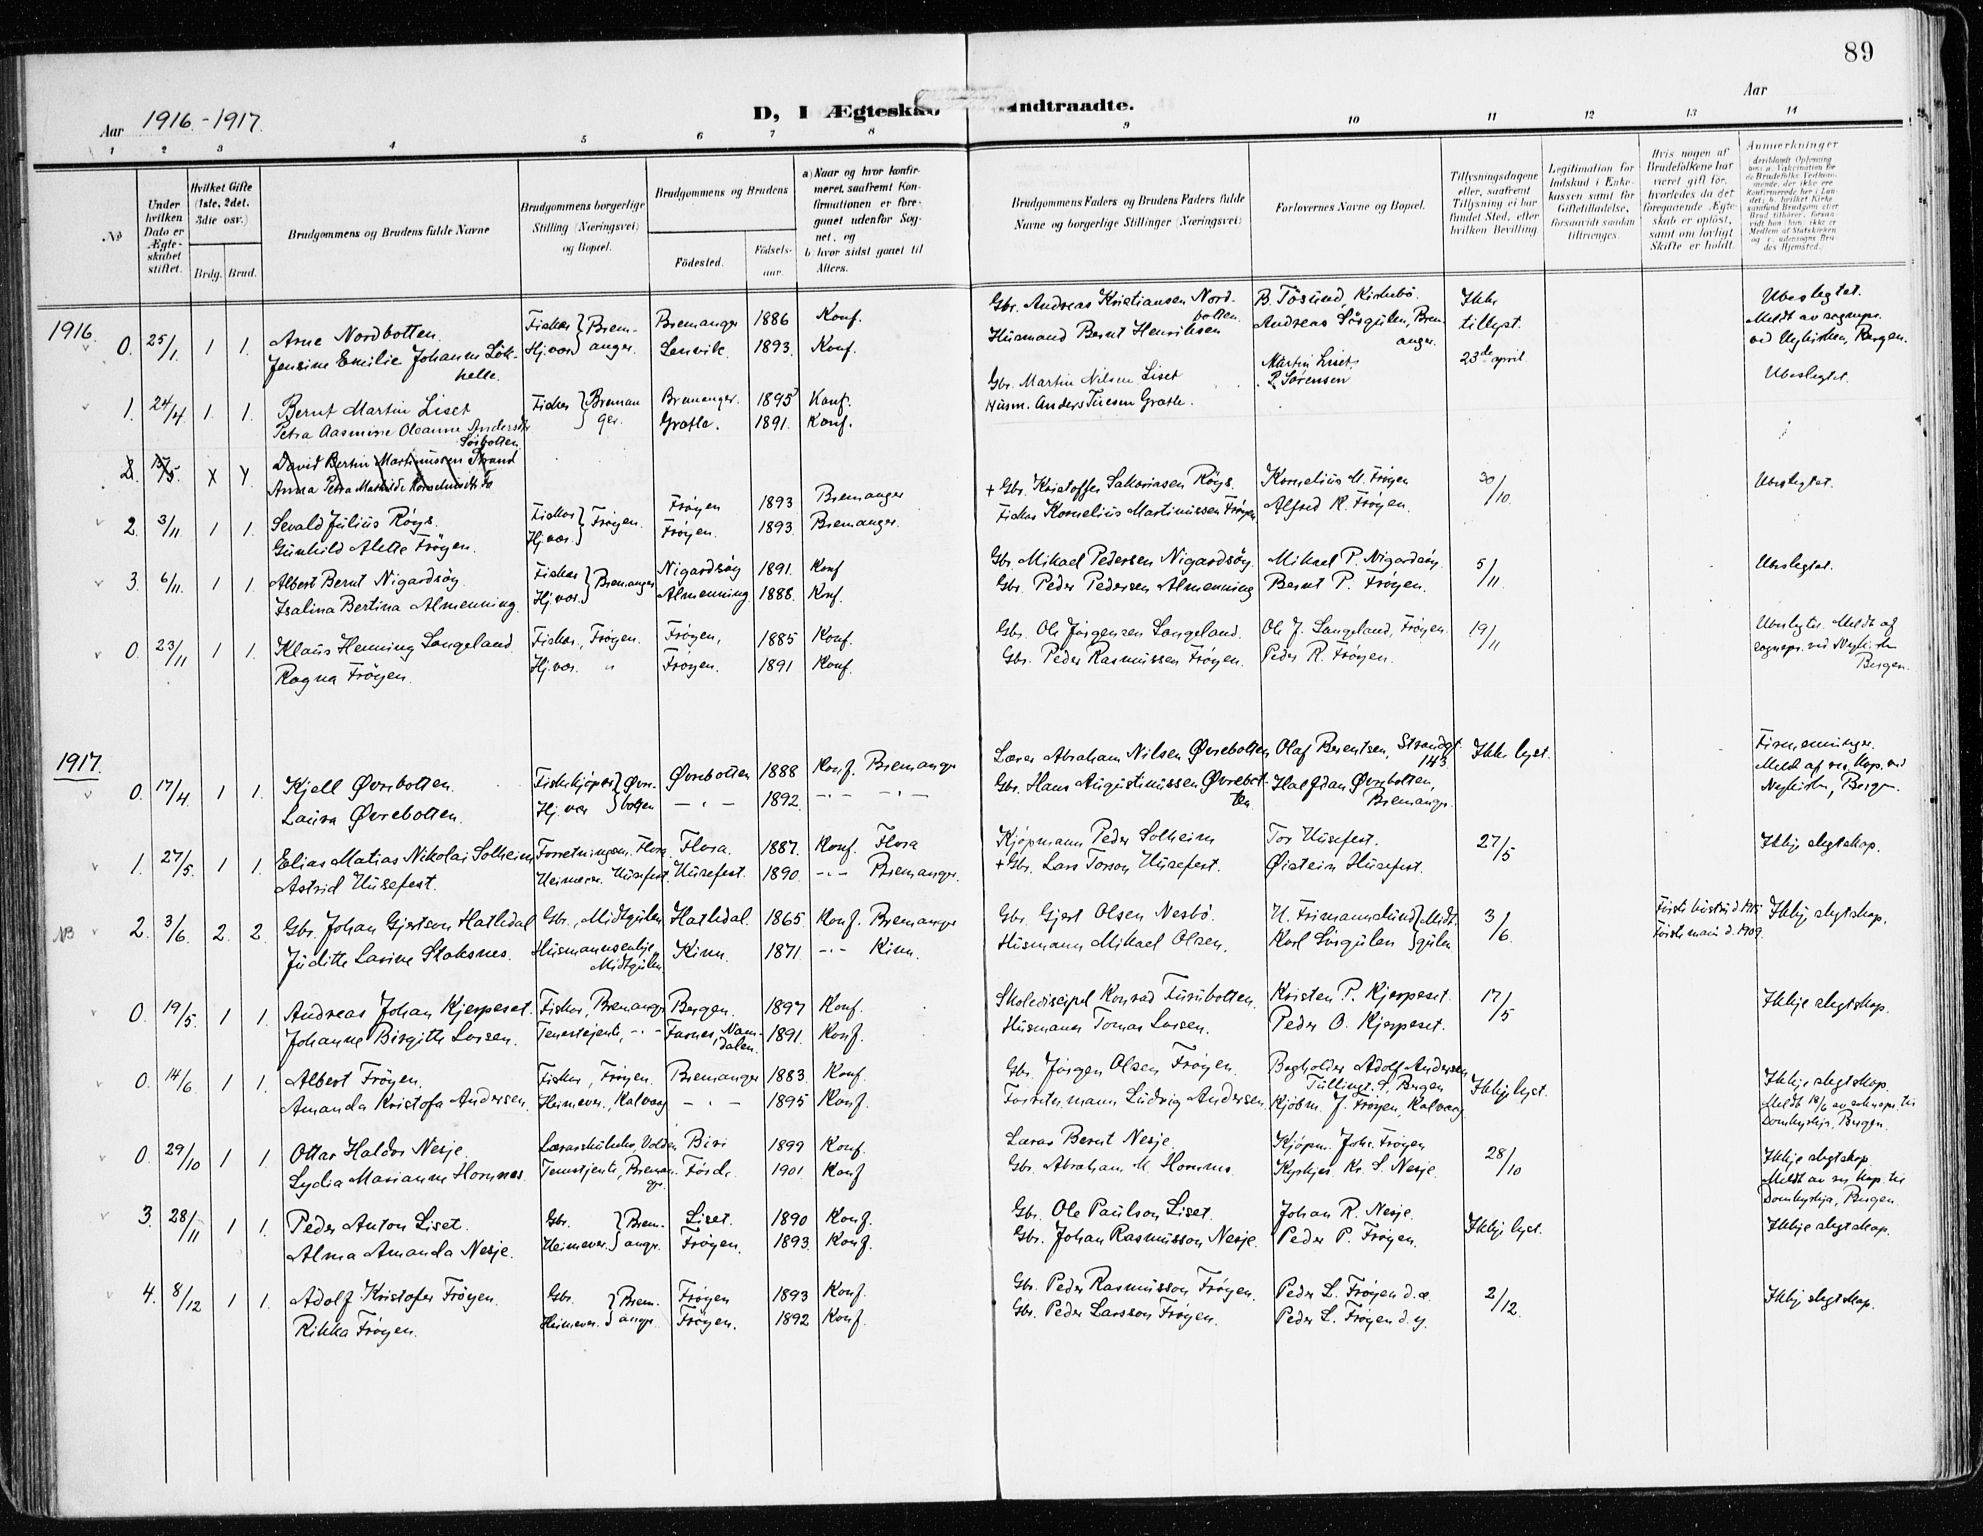 89
Aar 1916.-1917.
D, I Ægteskab Indtraadte.
Aar
1 2 3 4 5 6 7 8 9 10 11 12 13 14
No
Under hvilken Dato er Ægteskabet stiftet.
Hvilket Gifte (1ste, 2det, 3die osv.)
Brdg. Brud.
Brudgommens og Brudens fulde Navne
Brudgommens borgerlige Stilling (Næringsvei) og Bopæl.
Brudgommens og Brudens
Födested.
Födsels-aar.
a) Naar og hvor konfirmeret, saafremt Konfirmationen er foregaaet udenfor Sognet, og
b) hvor sidst gaaet til Alters.
Brudgommens Faders og Brudens Faders fulde Navne og borgerlige Stillinger (Næringsvei)
Forlovernes Navne og Bopæl.
Tillysningsdagene eller, saafremt Tillysning ei har fundet Sted, efter hvilken Bevilling.
Legitimation for Indskud i Enkekassen samt for Giftetilladelse, forsaavidt saadan tiltrænges.
Hvis nogen af Brudefolkene har været gift för, hvorledes da det foregaaende Ægteskab er oplöst, samt om lovligt Skifte er holdt.
Anmerkninger
1916.
0. 25/1. 1 1. Arne Nordbotten. Fisker Bremanger Bremanger 1886 Konf. Gbr. Andreas Kristiansen Nordbotten. B. Tösund, Kirkebö. Ikke tillyst. Ubeslegtet.
Jensine Emilie Johanne Lökkelle. Hj.vær. anger. Lenvik. 1893. Konf. Husmand Bernt Henriksen Andreas Sörgulen, Bremanger. Meldt av sognepr. ved Nykirken, Bergen.
1. 24/4. 1. 1. Bernt Martin Liset Fisker Bremanger. Bremanger. 1895 Konf. Gbr. Martin Nilsen Liset Martin Liset, 23de april Ubeslegtet.
Petra Aasmine Oleanne Andersdtr Sörbotten Grotle. 1891. Konf. Husm. Anders Tuesen Grotle. P. Sörensen
2. 15/5. David Bertin Martinussen Strand
Anna Petra Mathilde
2. 3/11 1 1. Sevald Julius Röys. Fisker Fröyen. Fröyen 1893 Bremanger + Gbr. Kristoffer Sakariasen Röys. Kornelius M. Fröyen 30/10. Ubeslegtet.
Gunhild Alette Fröyen. Hj.vær. Fröyen. 1893. Bremanger. Fisker Kornelius Martinussen Fröyen Alfred K. Fröyen.
3. 6/11. 1 1. Albert Bernt Nigardsöy. Fisker Bremanger Nigardsöy 1891. Konf Gbr. Mikael Pedersen Nigardsöy Mikael P. Nigardsöy. 5/11 Ubeslegtet.
Isalina Bertina Almenning. Hj.vær. Almenning 1888. Konf. Gbr. Peder Pedersen Almenning Bernt P. Fröyen.
0. 23/11 1 1. Klaus Henning Langeland. Fisker, Fröyen. Fröyen, 1885 Konf. Gbr. Ole Jörgensen Langeland. Ole J. Langeland, Fröyen. 19/11 Ubeslegtet. Meldt af
Ragna Fröyen. Hj.vær. " Fröyen. 1891 Konf. Gbr. Peder Rasmussen Fröyen. Peder R. Fröyen. sognepr. ved Nykirken Bergen.
1917.
0. 17/4. 1 1. Kjell Øvrebotten. Fiskekjöper Øvrebotten Øvrebotten 1888 Konf. Bremanger Lærer Abraham Nilsen Øvrebotten Olaf Berentsen, Strandgt 143. Ikke lyst. Firmenninger.
Laura Øvrebotten. Hj.vær — " — 1892. — " — Gbr. Hans Augustinussen Øvrebotten. Halfdan Øvrebotten, Bremanger. Nykirken, Bergen.
1. 27/5. 1 1. Elias Matias Nikolai Solheim Forretningsm. Flora. Flora. 1887. Konf. Flora Kjöpmann Peder Solheim Tor Husefest. 27/5 Ikkje slegtskap.
Astrid Husefest. Heimever. Husefest. Husefest. 1890 — " — Bremanger. + Gbr. Lars Torson Husefest. Øistein Husefest.
NB 2. 3/6. 2. 2. Gbr. Johan Gjertson Hatledal Gbr., Midtgulen Hatledal. 1865 Konf. Bremanger Gbr. Gjert Olsen Nesbö. H. Frimannslund Midtgulen 3/6. Ikkje slegtskap.
Judithe Larine Staksnes. Husmannsenkje, Midtgulen Kinn. 1871. — " — Kinn. Husmann Mikael Olsen. Karl Sörgulen Første mann d. 1909.
0. 19/5. 1 1. Andreas Johan Kjerpeset. Fisker, Bremanger Bergen. 1897 Konf. Skoledisipel Konrad Furubotten. Kristen P. Kjerpeset. 17/5 Ikkje slegtskap.
Johanne Birgitte Larsen. Tenestejente, — " — Namdalen. 1891. Konf. Husmann Tomas Larsen. Peder O. Kjerpeset.
0. 14/6 1 1. Albert Fröyen. Fisker, Fröyen. Bremanger 1883. Konf. Gbr. Jörgen Olsen Fröyen. Bogholder Adolf Andersen Bergen Ikkje lyst. Ikkje slegtskap.
Amanda Kristofa Andersen. Heimever., Kalvaag — " — 1895 Konf. Ludvig Andersen. Kjöbm. J. Fröyen, Kalvaag Domkyrkja, Bergen.
0. 29/10 1 1. Ottar Haldor Nesje. Lærarskuleelev, Volden Biri 1899 Konf. Lærar Bernt Nesje. Kjöpm. Johs. Fröyen 28/10 Ikkje slegtskap.
Lydia Marianne Hornnes. Tenestjente, Bremanger. Förde. 1901. Konf Gbr. Abraham M. Hornnes. Kyrkjes. Kr. S. Nesje. Domkyrkja, Bergen.
3. 28/11 1 1. Peder Anton Liset. Gbr. Bremanger. Liset. 1890 Konf. Gbr. Ole Paulson Liset. Johan R. Nesje. Ikkje lyst. Ikkje slegtskap.
Alma Amanda Nesje. Heimever. Fröyen. 1893. Konf. Gbr. Johan Rasmusson Nesje. Peder P. Fröyen.
4. 8/12 1 1. Adolf Kristofer Fröyen. Gbr. Bremanger. Fröyen 1893 Konf. Gbr. Peder Rasmusson Fröyen. Peder L. Fröyen d.e. 2/12. Ikkje slegtskap.
Rikka Fröyen. Heimever. Fröyen. 1892 Konf. Gbr. Peder Larsson Fröyen. Peder L. Fröyen d.y.